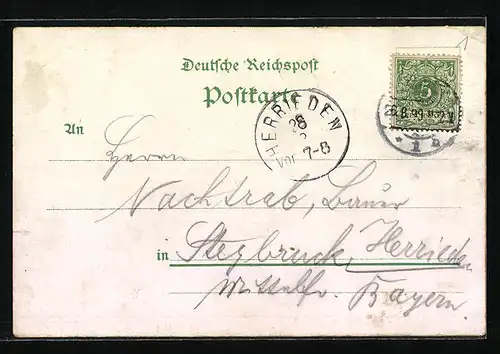 Deutsche Reichspost
Postkarte
An
Herrn
Nachtrab, Bauer
in Stegbruck, Herrieden
Mittelfr. Bayern
HERRIEDEN
28
Vor. 7-8
5